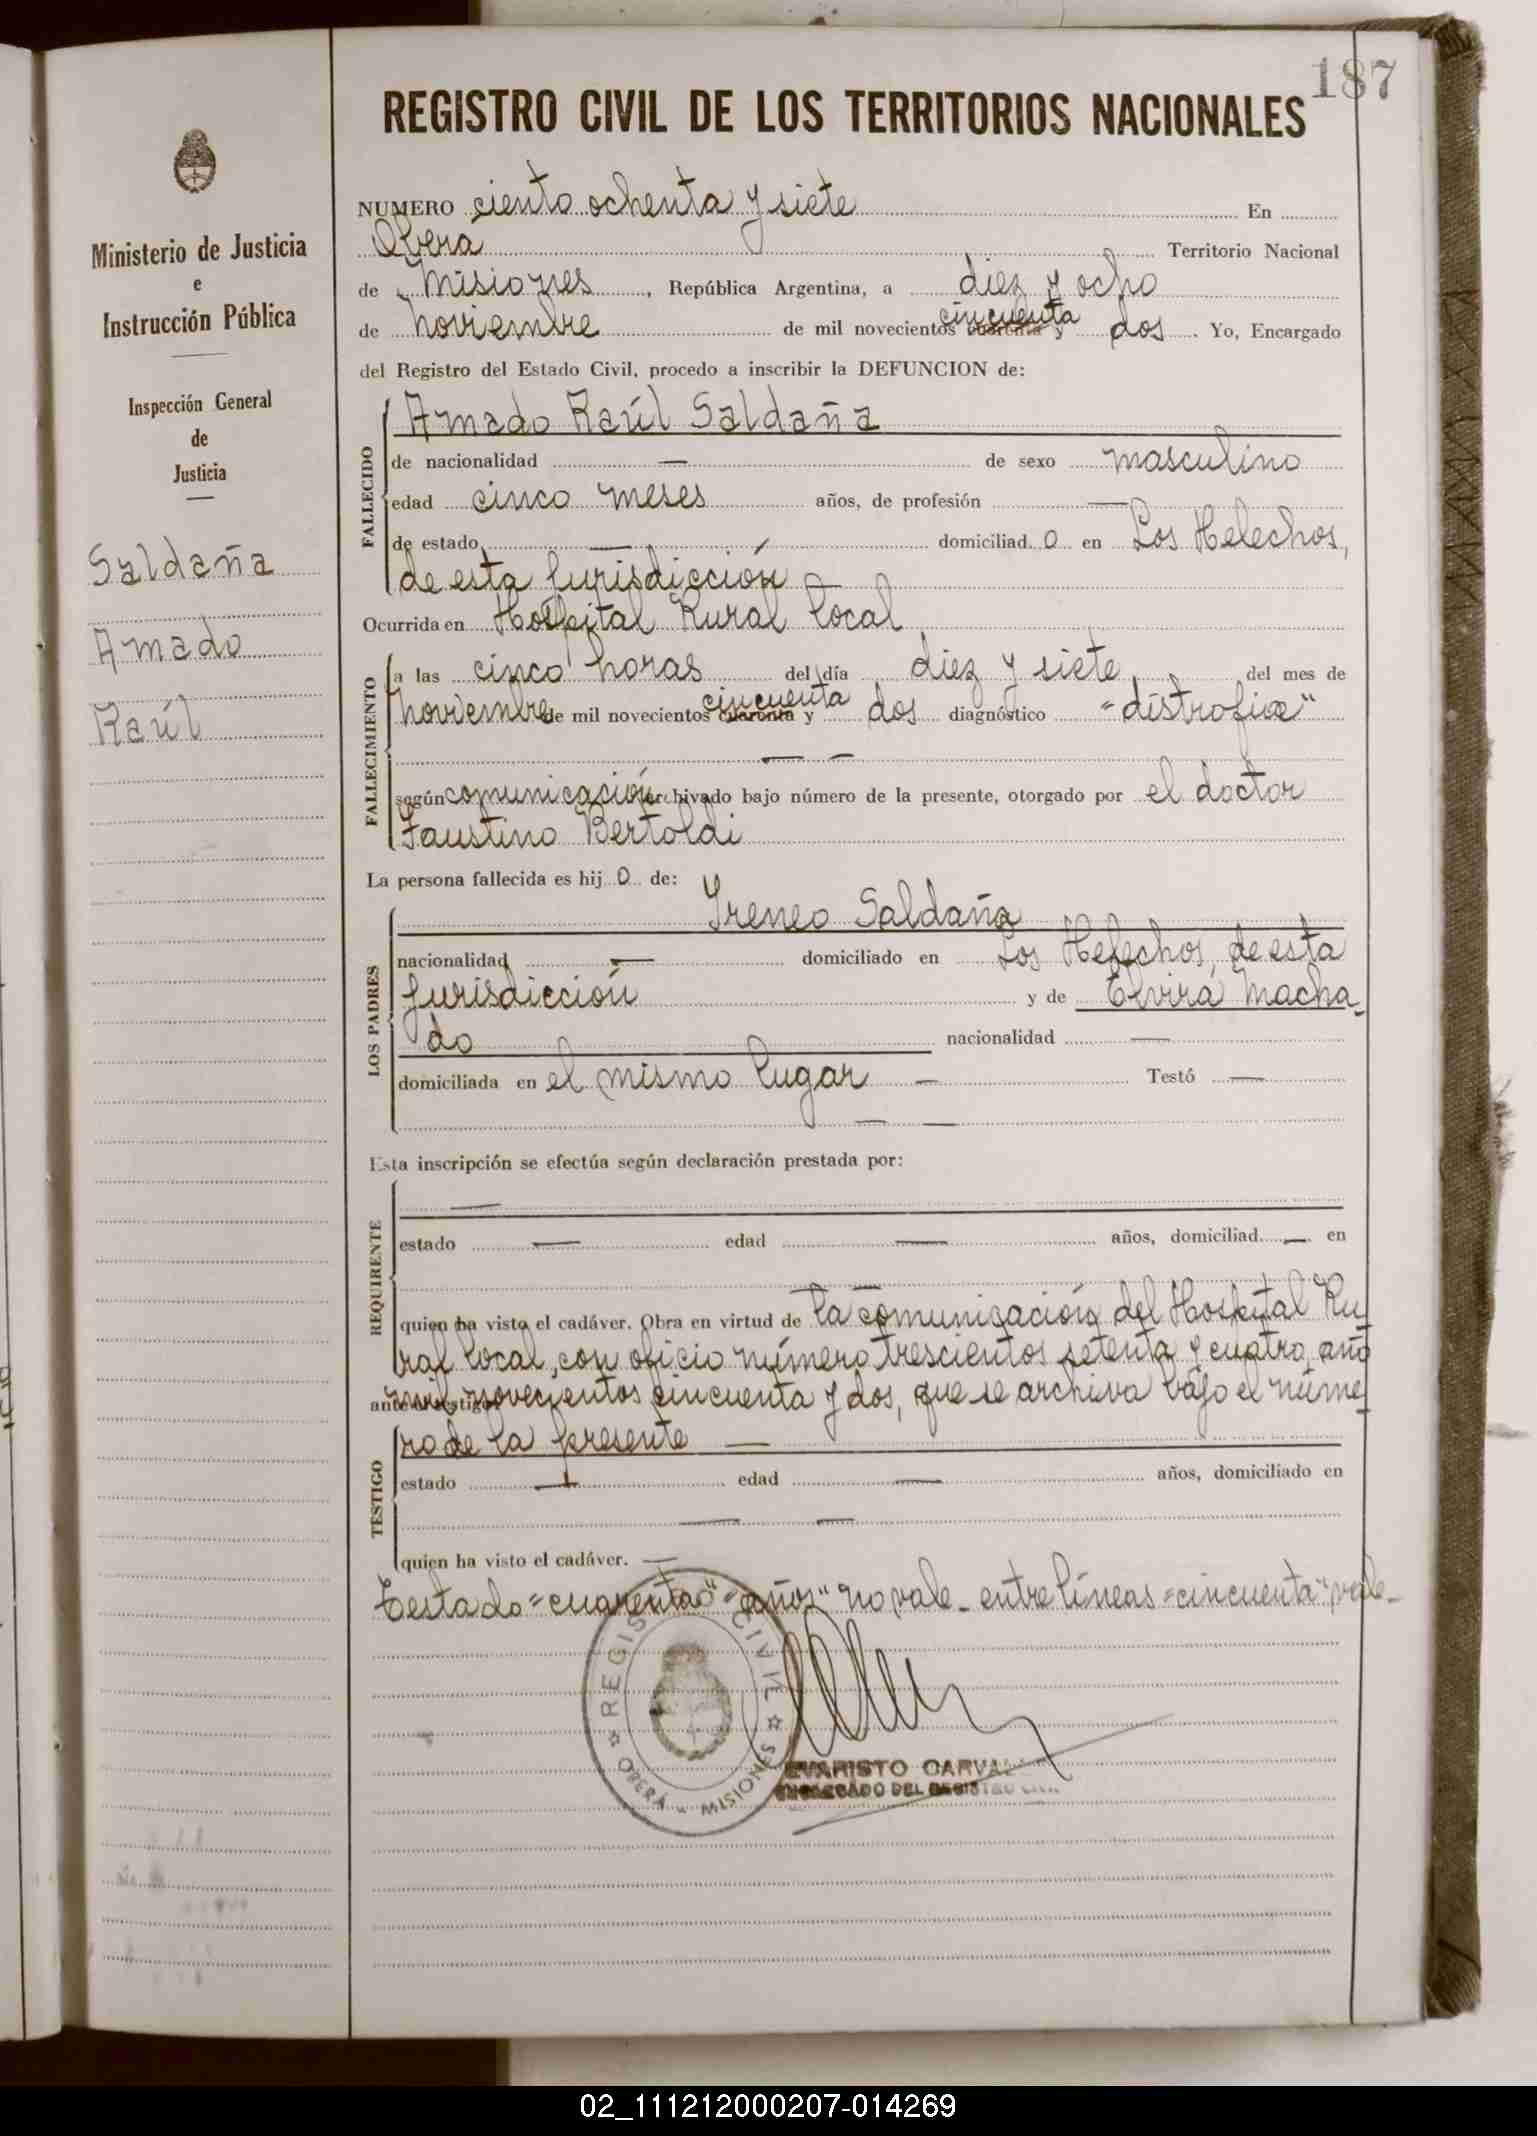 187
REGISTRO CIVIL DE LOS TERRITORIOS NACIONALES
Ministerio de Justicia
e
Instrucción Pública
Inspección General
de
Justicia
Saldaña
Amado
Raúl
NUMERO ciento ochenta y siete En
Obera Territorio Nacional
de Misiones, República Argentina, a diez y ocho
de noviembre de mil novecientos cincuenta cuarenta y dos. Yo, Encargado
del Registro del Estado Civil, procedo a inscribir la DEFUNCION de:
FALLECIDO
Amado Raúl Saldaña
de nacionalidad — de sexo masculino
edad cinco meses años, de profesión —
de estado — domiciliad o en Los Helechos,
de esta jurisdicción —
Ocurrida en Hospital Rural local
FALLECIMIENTO
a las cinco horas del día diez y siete del mes de
noviembre de mil novecientos cincuenta cuarenta y dos diagnóstico "distrofia"
— —
según comunicación archivado bajo número de la presente, otorgado por el doctor
Faustino Bertoldi
La persona fallecida es hij o de:
LOS PADRES
Ireneo Saldaña
nacionalidad — domiciliado en Los Helechos, de esta
jurisdicción y de Elvira Macha-
do nacionalidad —
domiciliada en el mismo lugar — Testó —
— —
Esta inscripción se efectúa según declaración prestada por:
REQUIRENTE
—
estado — edad — años, domiciliad — en
—
quien ha visto el cadáver. Obra en virtud de la comunicación del Hospital Ru-
ral local, con oficio número trescientos setenta y cuatro, año
mil novecientos cincuenta y dos, que se archiva bajo el núme-
ro de la presente —
TESTIGO
estado — edad — años, domiciliado en
— —
quien ha visto el cadáver. —
Testado="cuarenta" "años" no vale_ entre líneas="cincuenta" vale_
REGISTRO CIVIL
OBERÁ - MISIONES
EVARISTO
ENCARGADO DEL REGISTRO
02_111212000207-014269